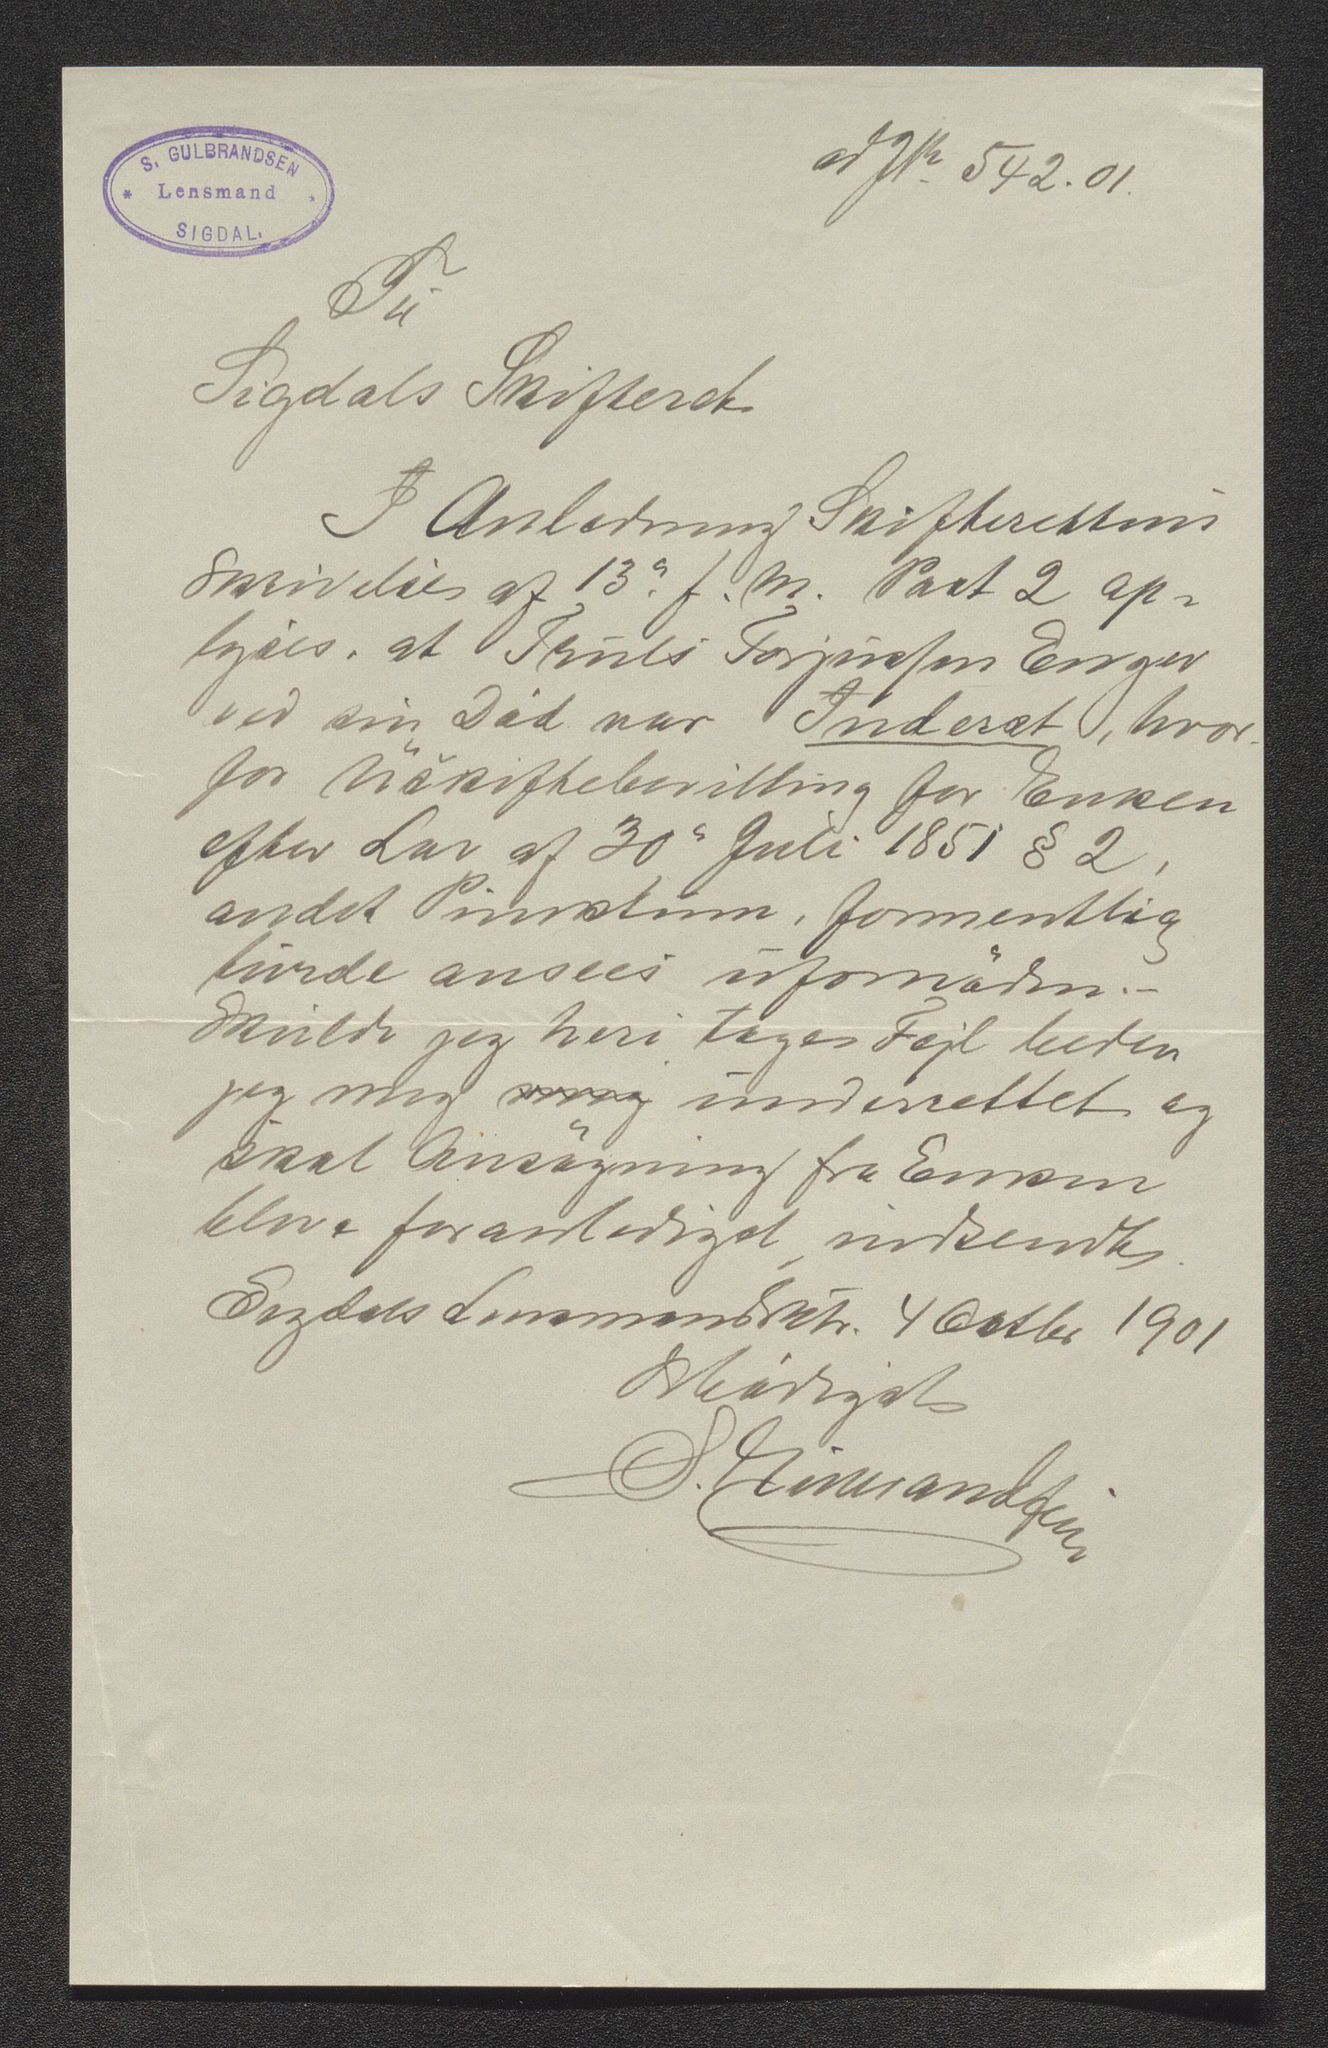 S. GULBRANDSEN
Lensmand
SIGDAL.
ad Jk 542.01.
Til
Sigdals Skifteret
I Anledning Skifterettens
Skrivelse af 13de f. M. Post 2 op-
lyses, at Truls Torjussen Enger
ved sin Död var Inderst, hvor-
for Uskiftebevilling for Enken
efter Lov af 30te Juli 1851 § 2,
andet Punktum, formentlig
burde ansees ufornöden.-
Skulde jeg heri tages Fejl beder
jeg mig underrettet og
skal Ansögning fra Enken
blive foranlediget indsendt.
Sigdals Lensmandsktr. 4 Octbr 1901
Ærbödigst
S. Gulbrandsen